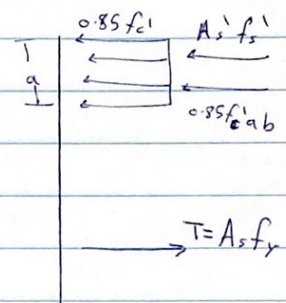 0.85 fc'
As' fs'
a
0.85fc'ab
T= As fy